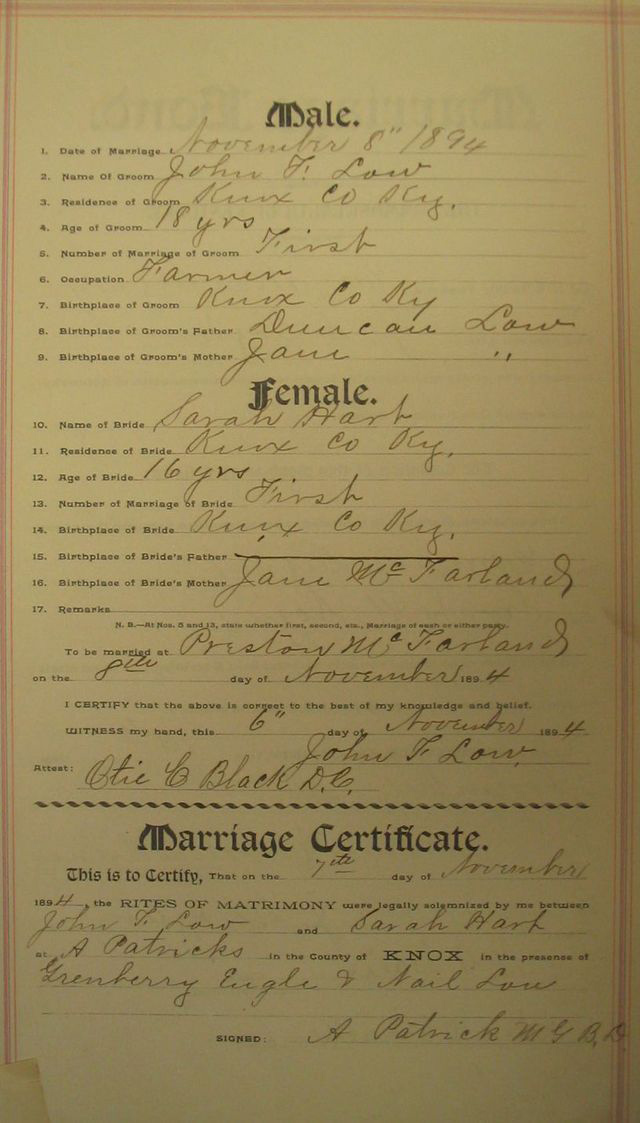 Male.
1. Date of Marriage November 8" 1894
2. Name Of Groom John F. Low
3. Residence of Groom Knox Co Ky.
4. Age of Groom 18 yrs
5. Number of Marriage of Groom First
6. Occupation Farmer
7. Birthplace of Groom Knox Co Ky
8. Birthplace of Groom's Father Duncan Low
9. Birthplace of Groom's Mother Jane "
Female.
10. Name of Bride Sarah Hart
11. Residence of Bride Knox Co Ky.
12. Age of Bride 16 yrs
13. Number of Marriage of Bride First
14. Birthplace of Bride Knox Co Ky.
15. Birthplace of Bride's Father
16. Birthplace of Bride's Mother Jane McFarland
17. Remarks
N. B.—At Nos. 5 and 13, state whether first, second, etc., Marriage of each or either party.
To be married at Preston McFarland
on the 8th day of November 1894
I CERTIFY that the above is correct to the best of my knowledge and belief.
WITNESS my hand, this 6" day of November 1894
John F Low.
Attest: Otie C Black D.C.
Marriage Certificate.
This is to Certify, That on the 7th day of November
1894, the RITES OF MATRIMONY were legally solemnized by me between
John F. Low and Sarah Hart
at A Patricks in the County of KNOX in the presence of
Grenberry Engle & Nail Low
SIGNED: A Patrick M G B. D.